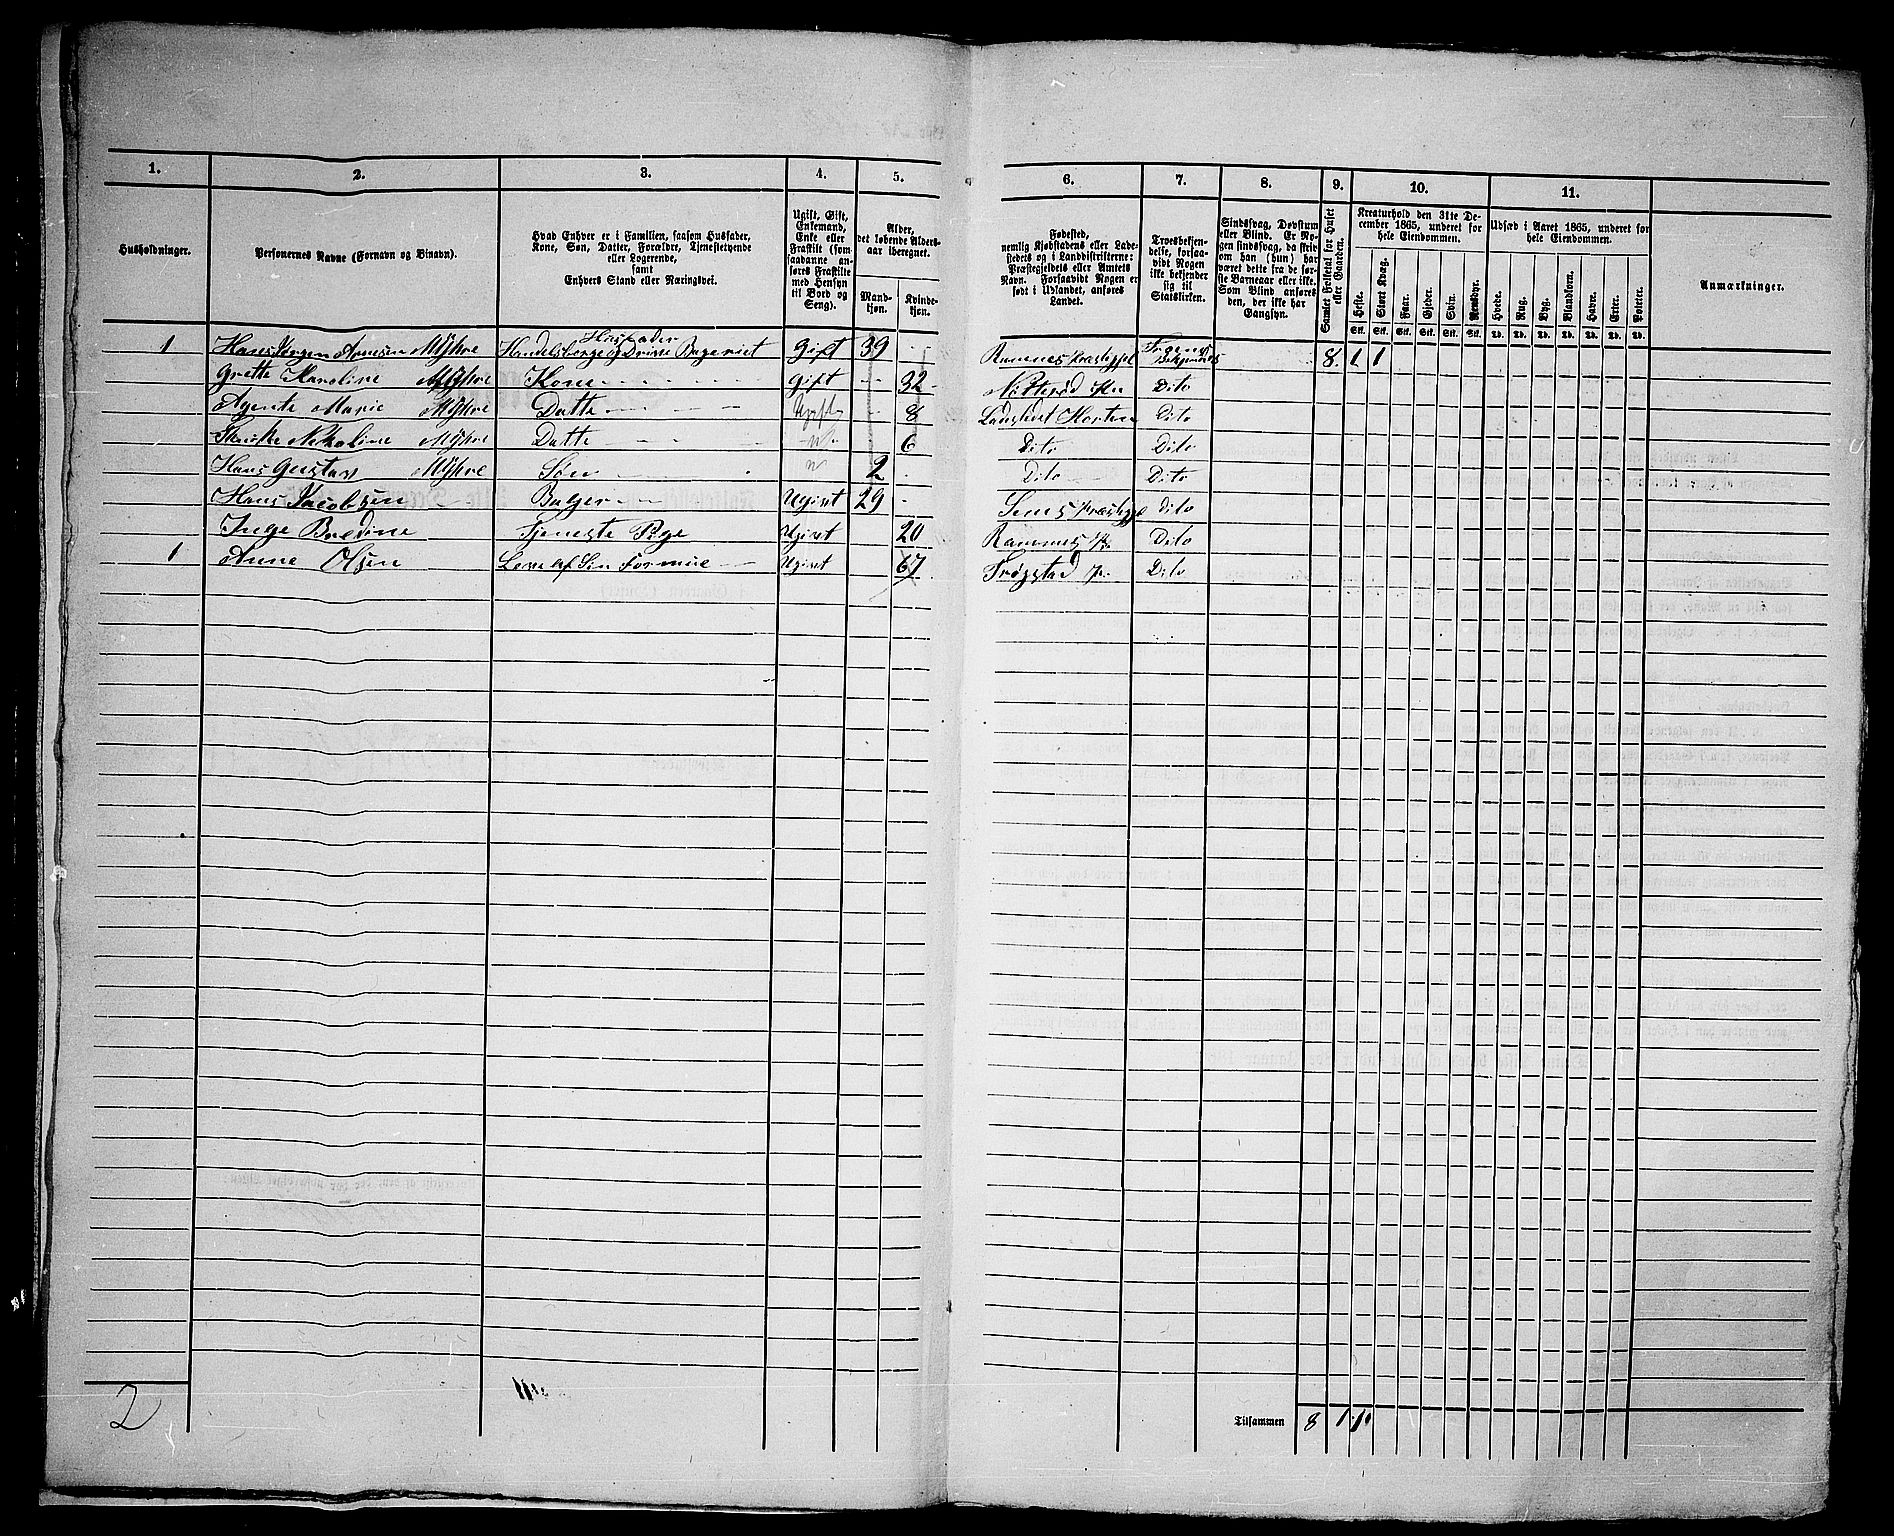 1.
2.
3.
4.
5.
6.
7.
8.
9.
10.
11.
Husholdninger.
Personernes Navne (Fornavn og Binavn).
Hvad Enhver er i Familien, saasom Husfader,
Kone, Søn, Datter, Forældre, Tjenestetyende
eller Logerende,
samt
Enhvers Stand eller Næringsvei.
Ugift, Gift,
Enkemand,
Enke eller
Fraskilt (som
saadanne an-
føres Fraskilte
med Hensyn
til Bord og
Seng).
Alder,
det løbende Alders-
aar iberegnet.
Mand-
kjøn.
Kvinde-
kjøn.
Fødested,
nemlig Kjøbstadens eller Lade-
stedets og i Landdistrikterne:
Præstegjeldets eller Amtets
Navn. Forsaavidt Nogen er
født i Udlandet, anføres
Landet.
Troesbekjen-
delse, forsaa-
vidt Nogen
ikke bekjender
sig til
Statskirken.
Sindssvag, Døvstum
eller Blind. Er No-
gen sindssvag, da skriv
om han (hun) har
været dette fra de før-
ste Barneaar eller ikke.
Som Blind anføres
den, der ikke har
Gangsyn.
Samlet Folketal for Huset
eller Gaarden.
Kreaturhold den 31te De-
cember 1865, underet for
hele Eiendommen.
Heste.
Stort Kvæg.
Faar.
Gjeder.
Svin.
Rensdyr.
Stk. Stk. Stk. Stk. Stk. Stk.
Udsæd i Aaret 1865, underet for
hele Eiendommen.
Hvede.
Rug.
Byg.
Blandkorn.
Havre.
Erter.
Poteter.
Td. Td. Td. Td. Td. Td. Td.
Anmærkninger.
Husfader
1 Hans Jørgen Arnesen Myhre Handelsborge og Drive Bageriet Gift 39 Ramnes Præstegjel 8. 1 1
Grette Karoline Myhre Kone Gift 32 Dito
Agente Marie Myhre Datte Ugift 8 Ladsted Horten Dito
Nikoline Myhre Datte " 6 Dito Dito
Hans Gustav Myhre Søn " 2 Dito Dito
Hans Jacobsen Bager Ugivt 29 Sems Dito
Inge Bredine Tjeneste Pige Ugivt 20 Ramnes Dito
1 Anne Olsen Leve af Sin Formue Ugivt 67 Trøgstad Dito
2
Tilsammen 8 1 1